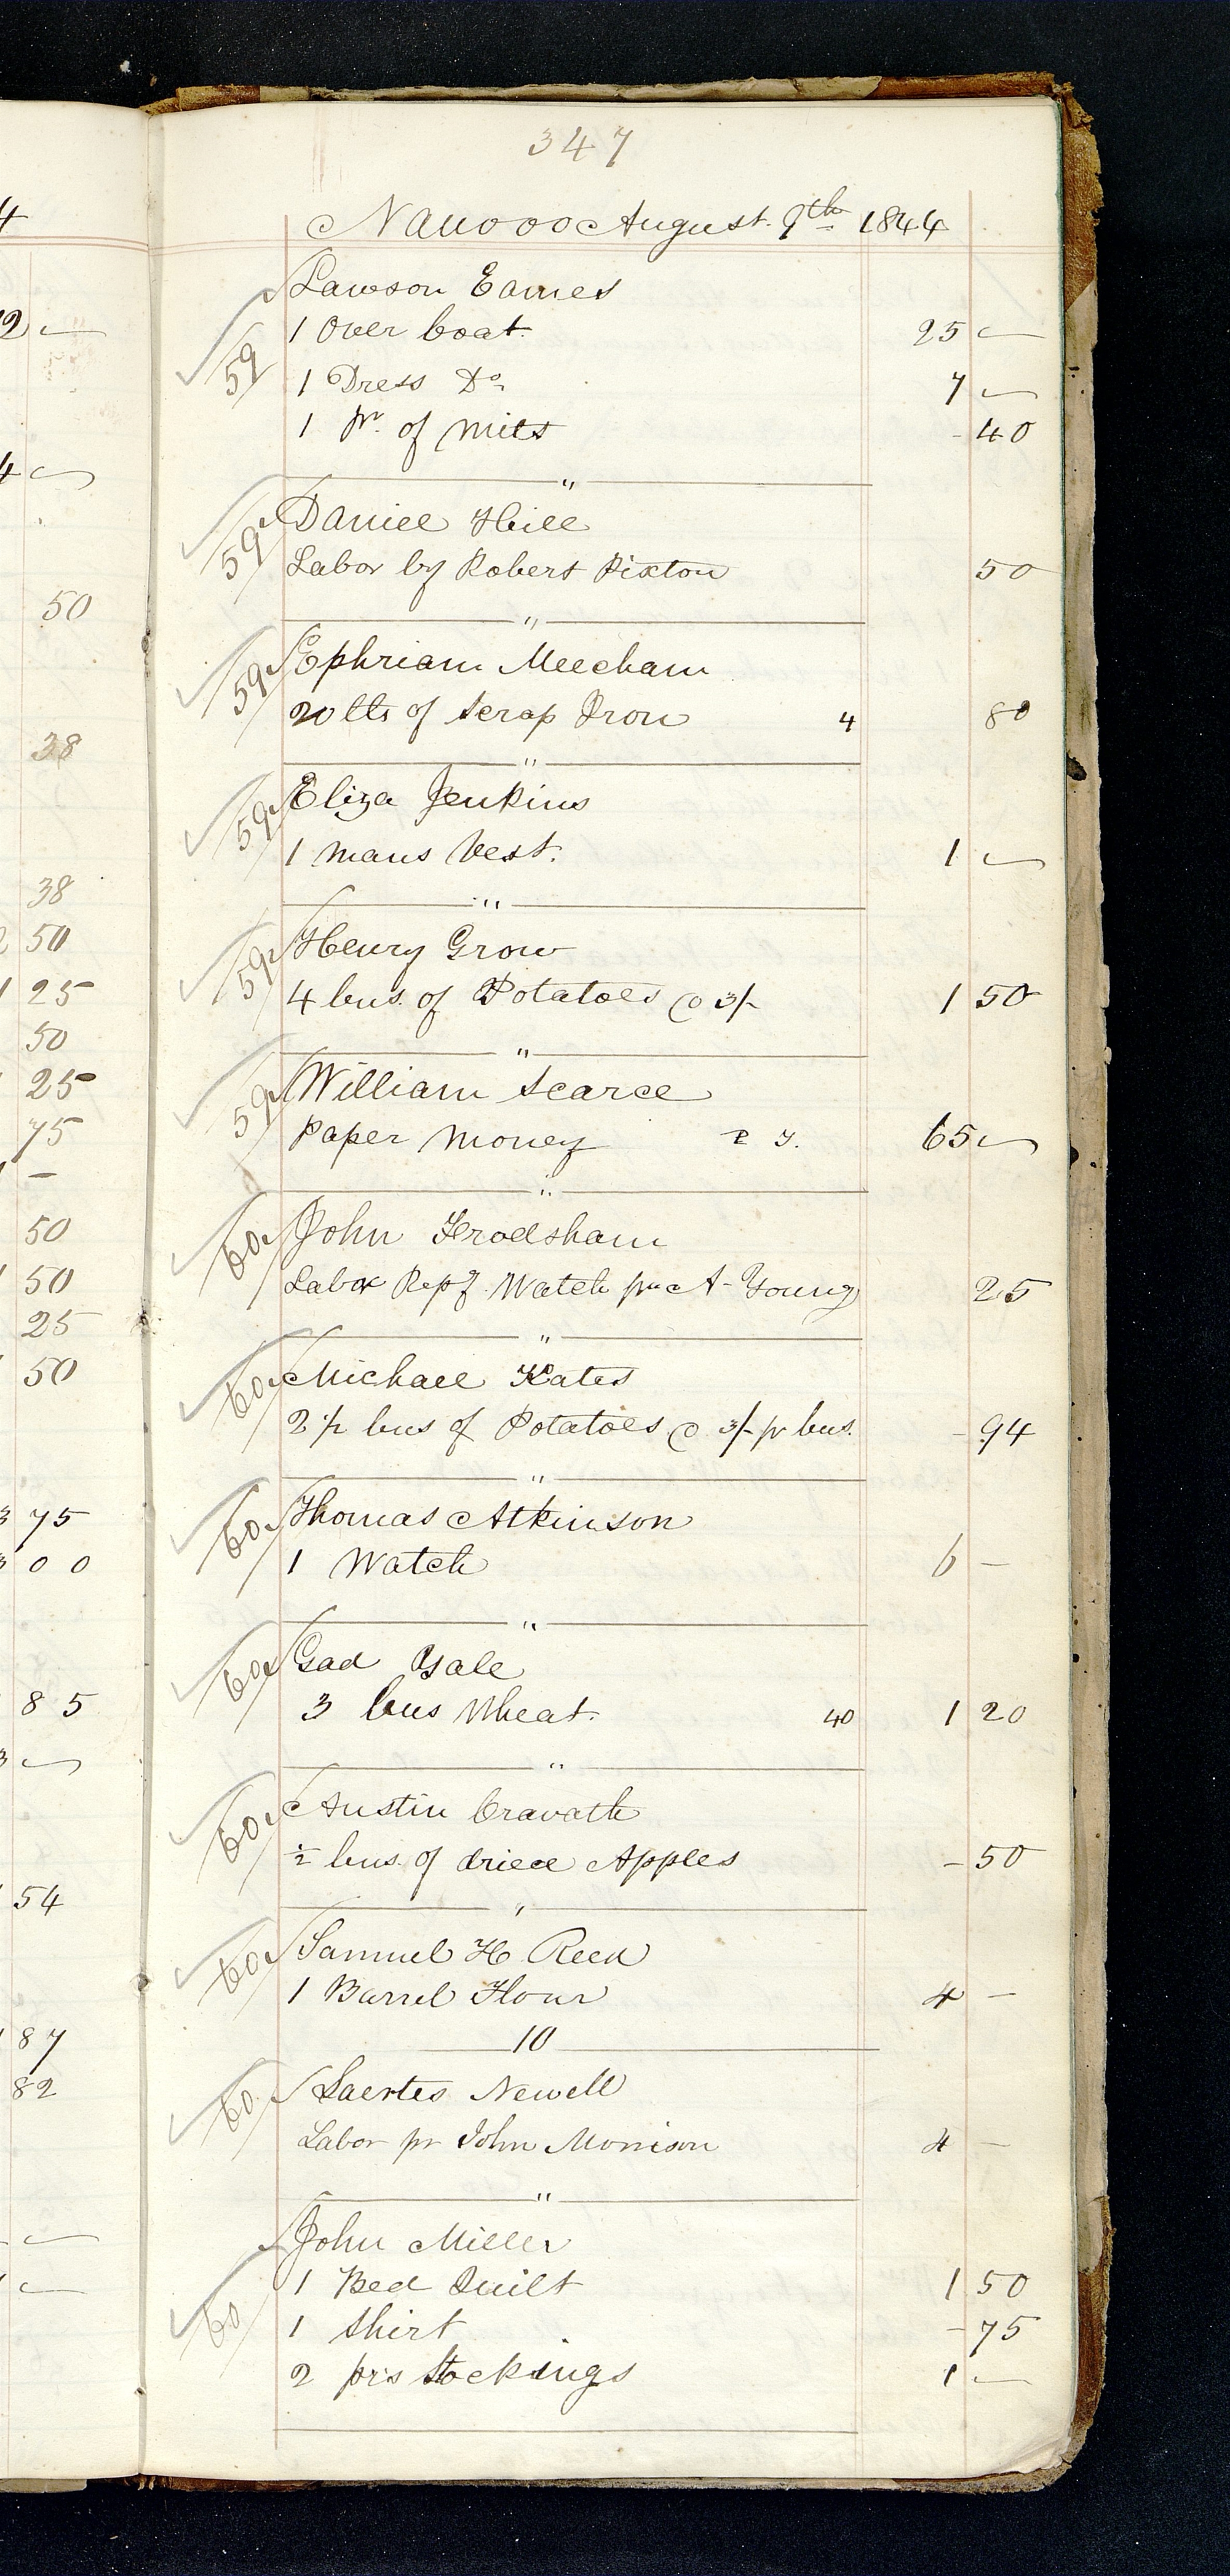 347
Nauvoo August 9th 1844
Lawson Eames
59 1 Over Coat 25 —
1 Dress Do 7 —
1 pr. of mits - 40
"
59 Daniel Hill
Labor by Robert Pixton 50
"
59 Ephriam Meecham
20 lbs of Scrap Iron 4 80
"
59 Eliza Jenkins
1 mans Vest. 1 —
"
59 Henry Grow
4 bus. of Potatoes @ 3/- 1 50
"
59 William Searce
Paper Money 65 —
"
60 John Frodsham
Labor Repg. Watch pr A. Young 25
"
60 Michael Kates
2 1/2 bus of Potatoes @ 3/- pr bus. - 94
"
60 Thomas Atkinson
1 Watch 6 —
"
60 Gad Yale
3 bus Wheat. 40 1 20
"
60 Austin Cravath
½ bus. of dried Apples - 50
"
60 Samuel H Reed
1 Barrel Flour 4 —
10
60 Laertes Newell
Labor pr John Morrison 4 —
"
John Miller
60 1 Bed Quilt 1 50
1 Shirt - 75
2 prs Stockings 1 —
4
2 —
4 —
50
38
38
2 50
1 25
50
25
75
—
50
50
25
50
3 75
3 00
85
3 —
54
87
82
—
—